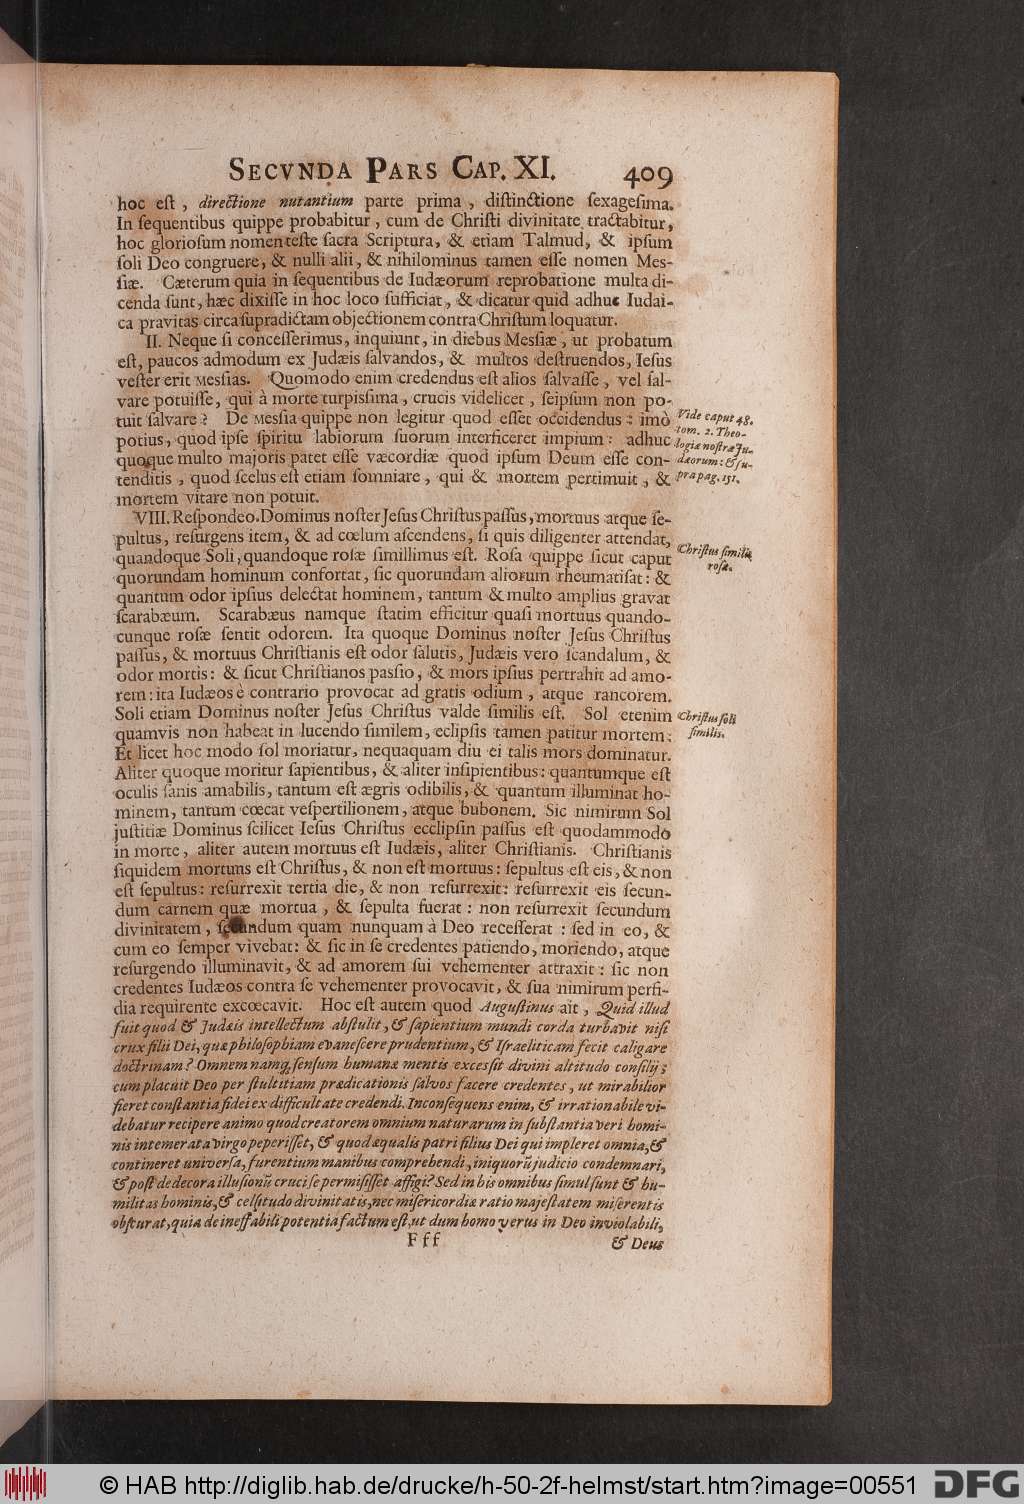 SECVNDA PARS CAP. XI. 409
hoc eſt, directione nutantium parte prima, diſtinctione ſexageſima.
In ſequentibus quippe probabitur, cum de Chriſti divinitate tractabitur,
hoc glorioſum nomen teſte ſacra Scriptura, & etiam Talmud, & ipſum
ſoli Deo congruere, & nulli alii, & nihilominus tamen eſſe nomen Meſ-
ſiæ. Cæterum quia in ſequentibus de Iudæorum reprobatione multa di-
cenda ſunt, hæc dixiſſe in hoc loco ſufficiat, & dicatur quid adhuc Iudai-
ca pravitas circa ſupradictam objectionem contra Chriſtum loquatur.
II. Neque ſi conceſſerimus, inquiunt, in diebus Meſſiæ, ut probatum
eſt, paucos admodum ex Judæis ſalvandos, & multos deſtruendos, Ieſus
veſter erit Meſſias. Quomodo enim credendus eſt alios ſalvaſſe, vel ſal-
vare potuiſſe, qui à morte turpiſſima, crucis videlicet, ſeipſum non po-
tuit ſalvare? De Meſſia quippe non legitur quod eſſet occidendus: imò
potius, quod ipſe ſpiritu labiorum ſuorum interficeret impium: adhuc
quoque multo majoris patet eſſe væcordiæ quod ipſum Deum eſſe con-
tenditis, quod ſcelus eſt etiam ſomniare, qui & mortem pertimuit, &
mortem vitare non potuit.
Vide caput 48.
tom. 2. Theo-
logiæ noſtræ Ju-
dæorum: & ſu-
pra pag. 151.
VIII. Reſpondeo. Dominus noſter Jeſus Chriſtus paſſus, mortuus atque ſe-
pultus, reſurgens item, & ad cœlum aſcendens, ſi quis diligenter attendat,
quandoque Soli, quandoque roſæ ſimillimus eſt. Roſa quippe ſicut caput
quorundam hominum confortat, ſic quorundam aliorum rheumatiſat: &
quantum odor ipſius delectat hominem, tantum & multo amplius gravat
ſcarabæum. Scarabæus namque ſtatim efficitur quaſi mortuus quando-
cunque roſæ ſentit odorem. Ita quoque Dominus noſter Jeſus Chriſtus
paſſus, & mortuus Chriſtianis eſt odor ſalutis, Judæis vero ſcandalum, &
odor mortis: & ſicut Chriſtianos paſſio, & mors ipſius pertrahit ad amo-
rem: ita Iudæos è contrario provocat ad gratis odium, atque rancorem.
Chriſtus ſimilis
roſæ.
Soli etiam Dominus noſter Jeſus Chriſtus valde ſimilis eſt. Sol etenim
quamvis non habeat in lucendo ſimilem, eclipſis tamen patitur mortem:
Et licet hoc modo ſol moriatur, nequaquam diu ei talis mors dominatur.
Aliter quoque moritur ſapientibus, & aliter inſipientibus: quantumque eſt
oculis ſanis amabilis, tantum eſt ægris odibilis, & quantum illuminat ho-
minem, tantum cœcat veſpertilionem, atque bubonem. Sic nimirum Sol
juſtitiæ Dominus ſcilicet Ieſus Chriſtus ecclipſin paſſus eſt quodammodo
in morte, aliter autem mortuus eſt Iudæis, aliter Chriſtianis. Chriſtianis
ſiquidem mortuns eſt Chriſtus, & non eſt mortuus: ſepultus eſt eis, & non
eſt ſepultus: reſurrexit tertia die, & non reſurrexit: reſurrexit eis ſecun-
dum carnem quæ mortua, & ſepulta fuerat: non reſurrexit ſecundum
divinitatem, ſecundum quam nunquam à Deo receſſerat: ſed in eo, &
cum eo ſemper vivebat: & ſic in ſe credentes patiendo, moriendo, atque
reſurgendo illuminavit, & ad amorem ſui vehementer attraxit: ſic non
credentes Iudæos contra ſe vehementer provocavit, & ſua nimirum perfi-
dia requirente excœcavit. Hoc eſt autem quod Auguſtinus ait, Quid illud
fuit quod & Judæis intellectum abſtulit, & ſapientium mundi corda turbavit niſi
crux filii Dei, quæ philoſophiam evaneſcere prudentium, & Iſraeliticam fecit caligare
doctrinam? Omnem namq; ſenſum humanæ mentis exceſſit divini altitudo conſilij;
cum placuit Deo per ſtultitiam prædicationis ſalvos facere credentes, ut mirabilior
fieret conſtantia fidei ex difficultate credendi. Inconſequens enim, & irrationabile vi-
debatur recipere animo quod creatorem omnium naturarum in ſubſtantia veri homi-
nis intemerata virgo peperiſſet, & quod æqualis patri filius Dei qui impleret omnia, &
contineret univerſa, furentium manibus comprehendi, iniquorũ judicio condemnari,
& poſt dedecora illuſionũ cruci ſe permiſiſſet affigi? Sed in his omnibus ſimul ſunt & hu-
militas hominis, & celſitudo divinitatis, nec miſericordiæ ratio majeſtatem miſerentis
obſcurat, quia de ineffabili potentia factum eſt, ut dum homo verus in Deo inviolabili,
Chriſtus ſoli
ſimilis.
Fff
& Deus
© HAB http://diglib.hab.de/drucke/h-50-2f-helmst/start.htm?image=00551
DFG